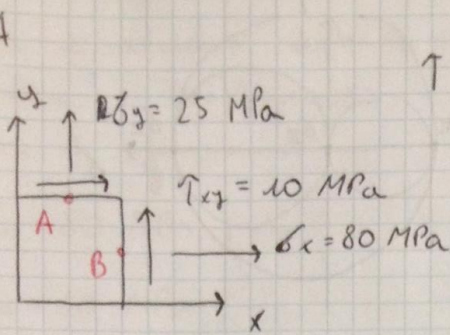 y
σy = 25 MPa
τxy = 10 MPa
A
σx = 80 MPa
B
x